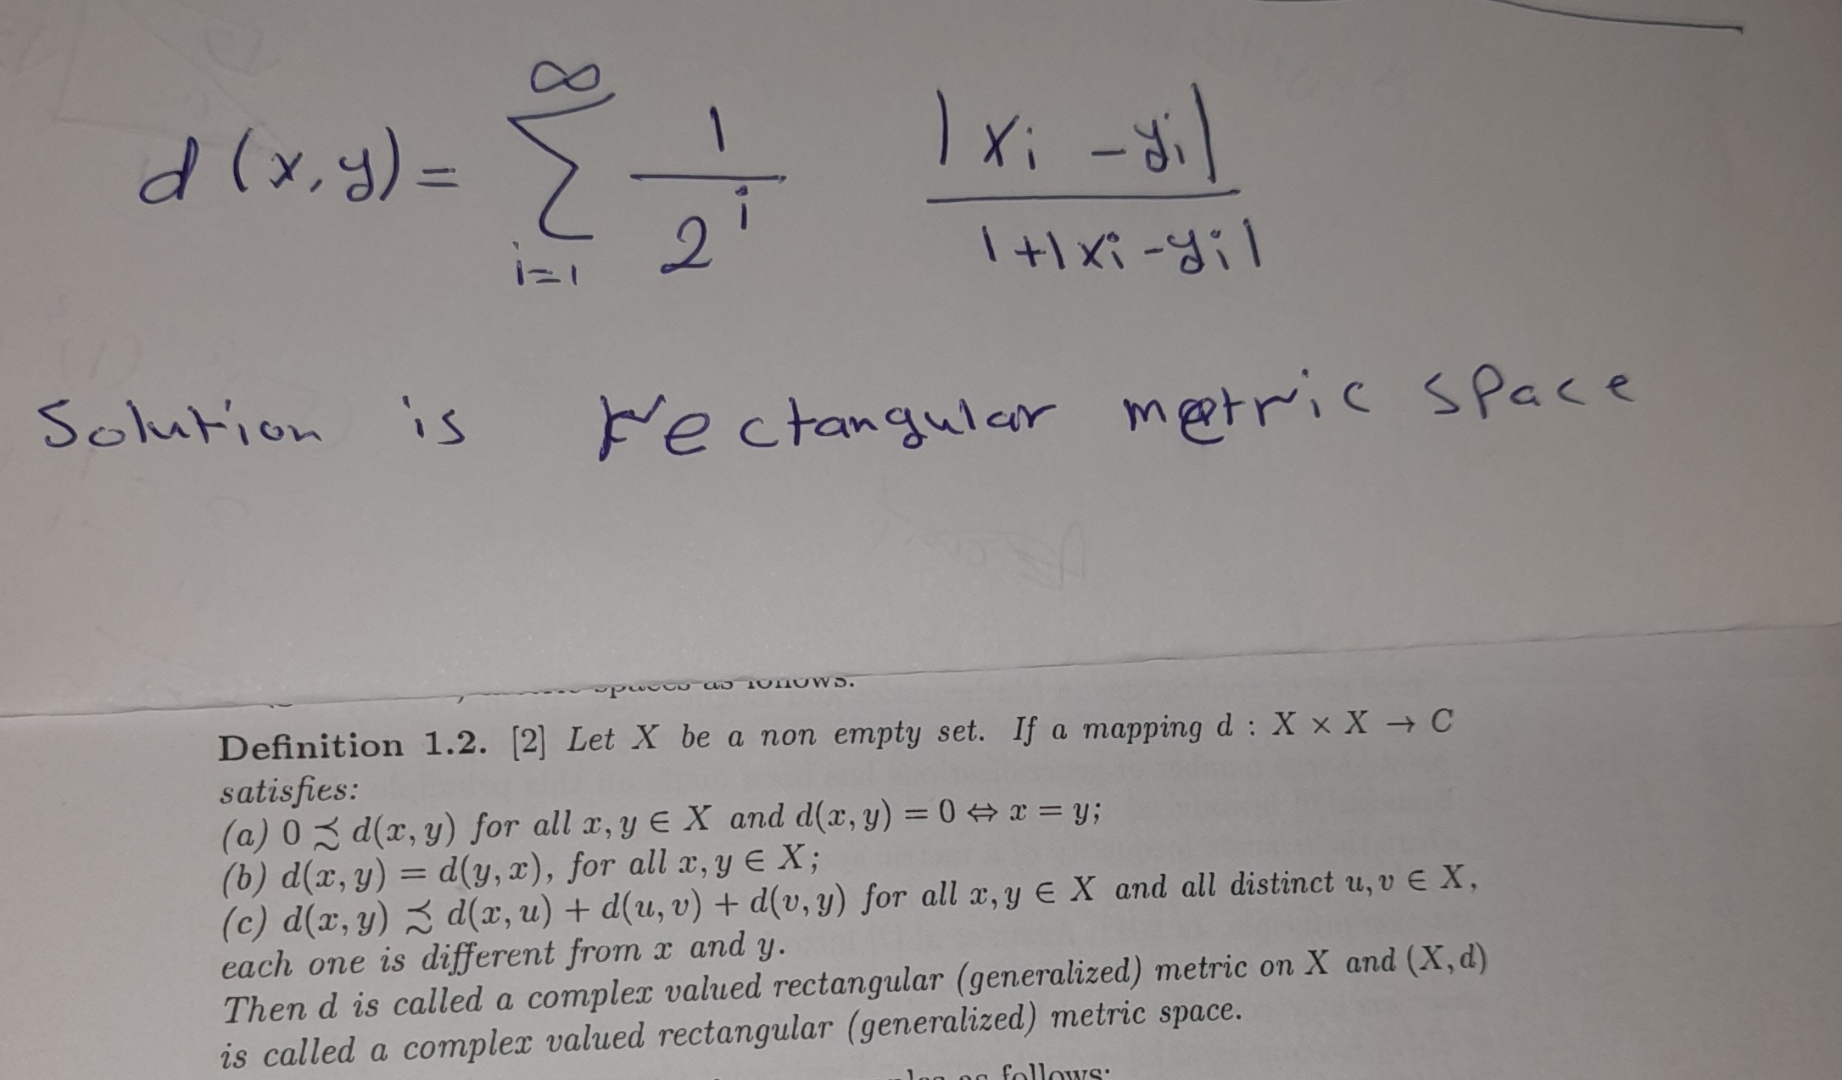 d(x,y) = ∞ Σ i=1 1/2^i |xi - yi| / 1+|xi-yi|
Solution is rectangular metric space
spaces as follows.
Definition 1.2. [2] Let X be a non empty set. If a mapping d : X × X → C
satisfies:
(a) 0 ≾ d(x, y) for all x, y ∈ X and d(x, y) = 0 ⇔ x = y;
(b) d(x, y) = d(y, x), for all x, y ∈ X;
(c) d(x, y) ≾ d(x, u) + d(u, v) + d(v, y) for all x, y ∈ X and all distinct u, v ∈ X,
each one is different from x and y.
Then d is called a complex valued rectangular (generalized) metric on X and (X, d)
is called a complex valued rectangular (generalized) metric space.
as follows: